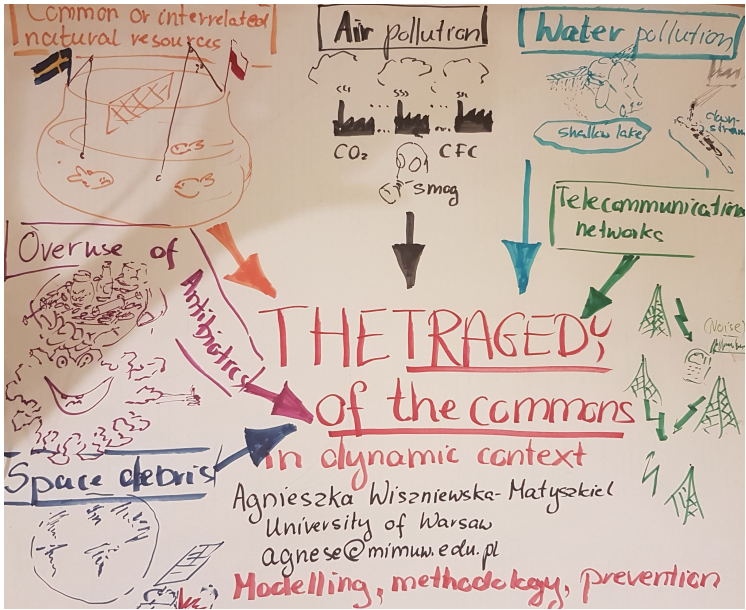 Common or interrelated
natural resources
Air pollution
CO₂
CFC
smog
Water pollution
shallow lake
down-
stream
Telecommunication
networks
(Noise)
Overuse of
Antibiotics
Space debris
THE TRAGEDY
of the commons
in dynamic context
Agnieszka Wiszniewska-Matyszkiel
University of Warsaw
agnese@mimuw.edu.pl
Modelling, methodology, prevention